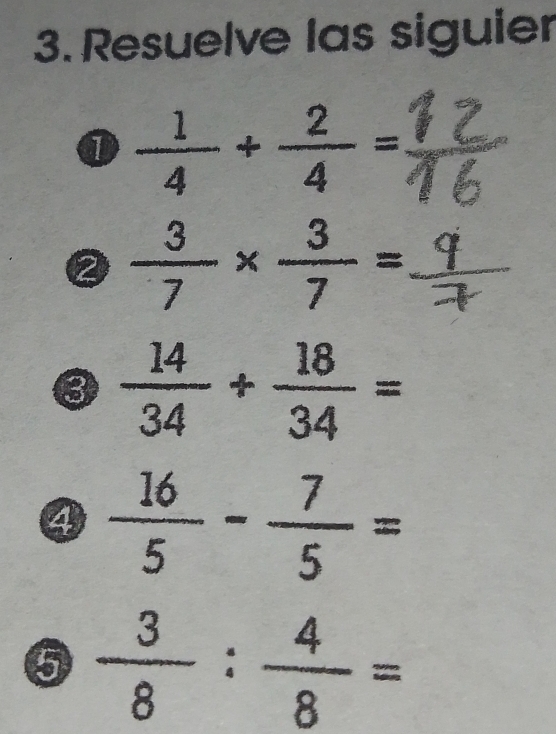 3. Resuelve las siguier
1 1/4 + 2/4 = 12/16
2 3/7 × 3/7 = 9/7
3 14/34 + 18/34 =
4 16/5 - 7/5 =
5 3/8 : 4/8 =